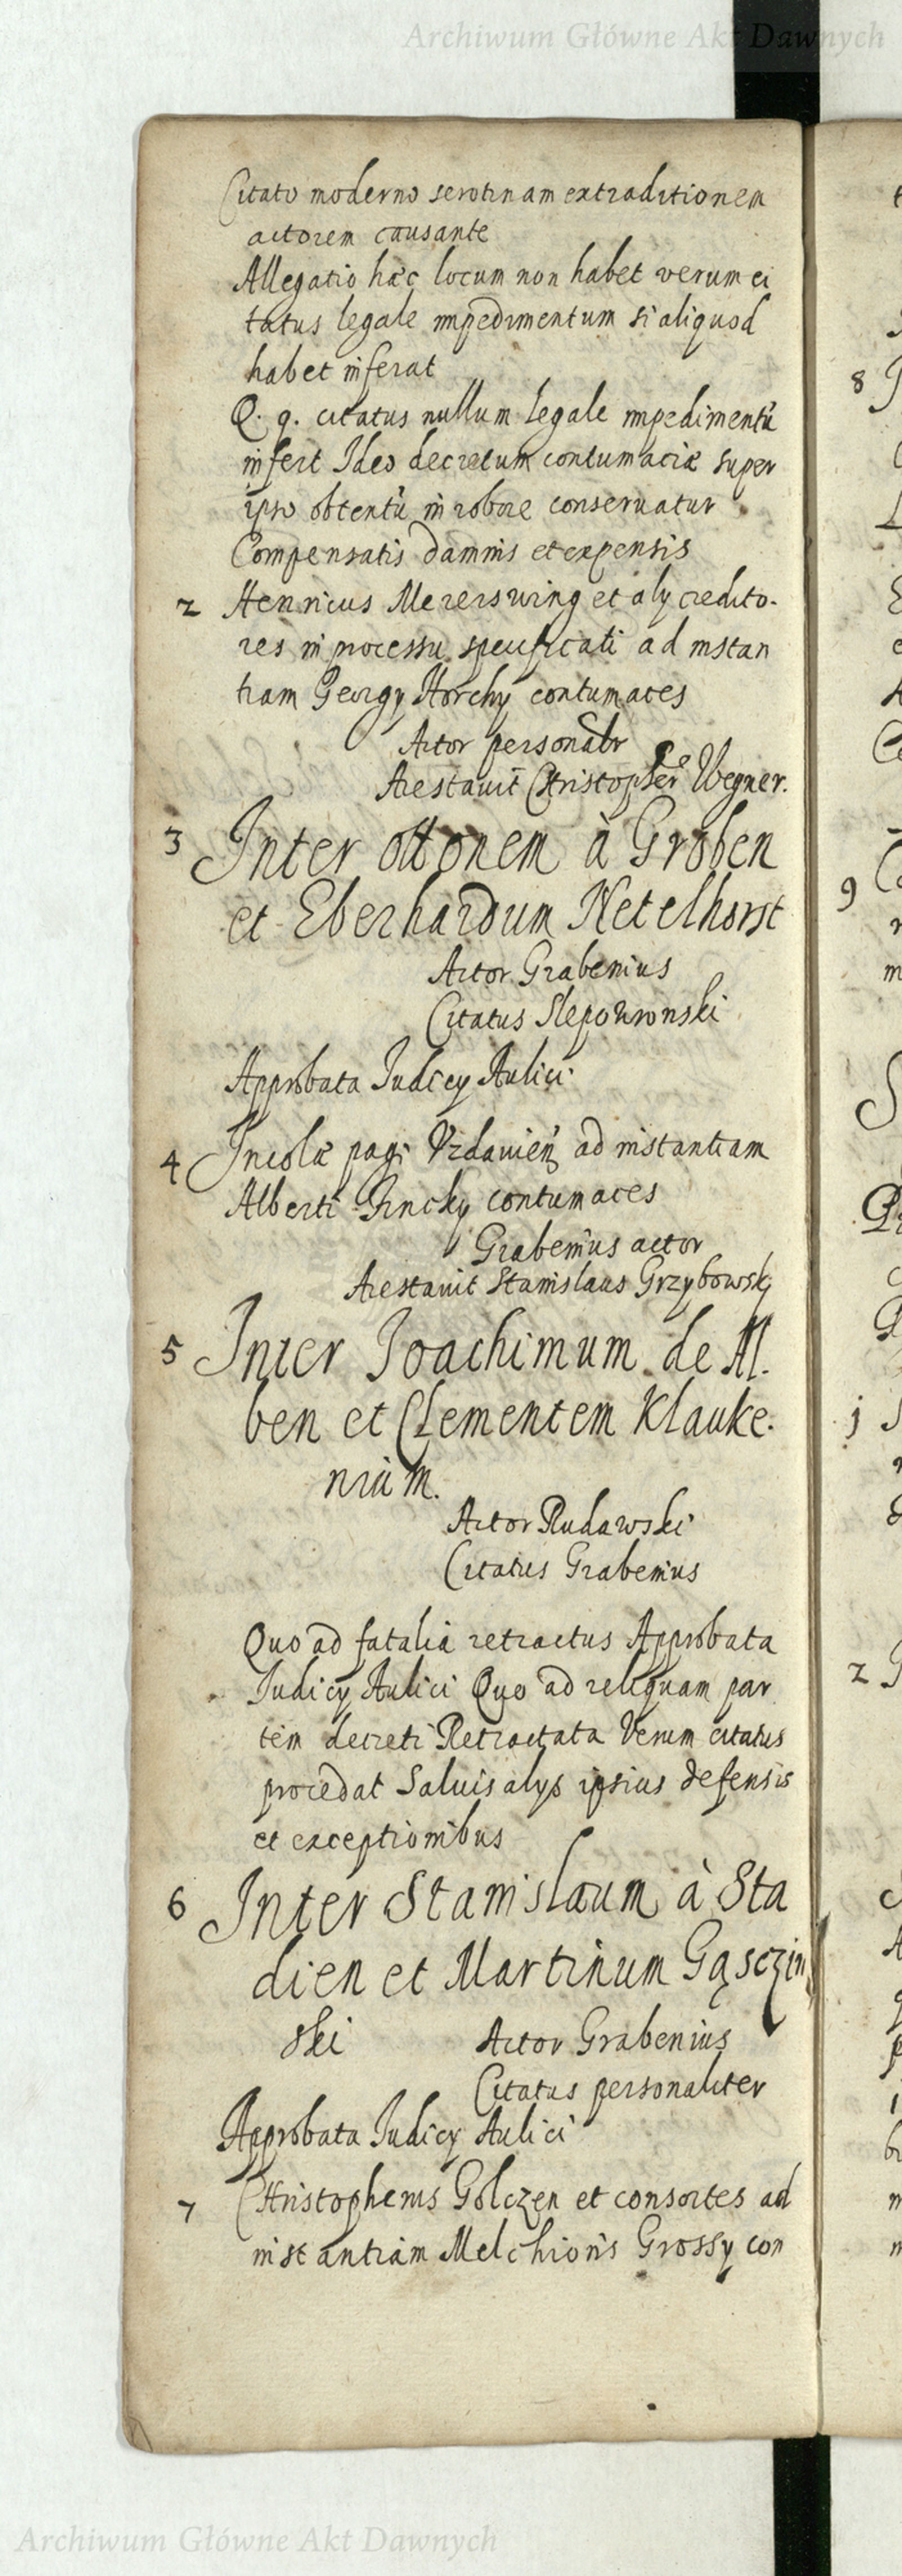 Archiwum Główne Akt Dawnych
Citato moderno serotinam extraditionem
actorem causante
Allegatio hæc locum non habet verum ci
tatus legale impedimentum si aliquod
habet inferat
Q. q. citatus nullum legale impedimentū
infert Ideo decretum contumaciæ super
ipso obtentū in robore conservatur
Compensatis damnis et expensis
2 Henricus Mererswing et alÿ credito-
res in processu specificati ad instan
tiam Georgÿ Horchÿ contumaces
Actor personalr
Arestavit Christopher Wegner.
3 Inter Ottonem à Groben
et Eberhardum Netelhorst
Actor Grabenius
Citatus Slepowronski
Approbata Judicÿ Aulici
4 Incolæ pagi Vzdavień ad instantiam
Alberti Fincky contumaces
Grabenius actor
Arestavit Stanislaus Grzybowskj
5 Inter Joachimum de Al.
ben et Clementem Klauke.
nium.
Actor Rudawski
Citatus Grabenius
Quo ad fatalia retractus Approbata
Judicÿ Aulici Quo ad reliquam par
tem decreti Retractata Verum citatus
procedat Salvis alÿs ipsius defensis
et exceptionibus
6 Inter Stanislaum à Sta
dien et Martinum Gąsczin
ski Actor Grabenius
Citatus personaliter
Approbata Judicÿ Aulici
7 Christopherus Golczen et consortes ad
instantiam Melchioris Grossÿ con
Archiwum Główne Akt Dawnych